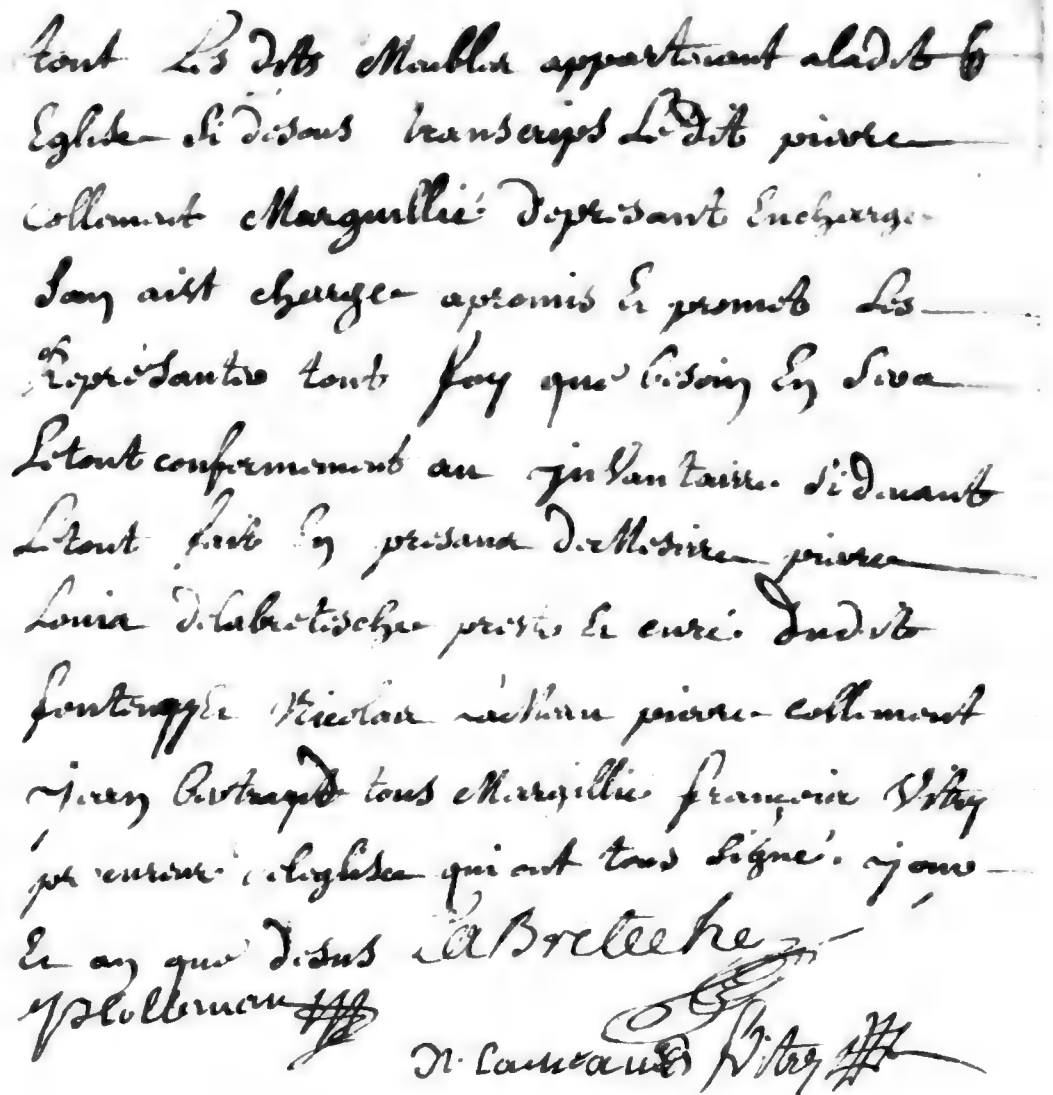 tout Les dits Meubles appartenant aladit
Eglise Si desous transcrips Ledit pierre
Collement Marguillié depresant Encharge
San aist charge apromis Et promet Les
Représanter tout foy que besoin En Sera
Letout confermement au jnVantaire Sidevant
Letout fait En presance deMesire pierre
Louis delabretesche prestre Et curé dudit
fontenay Et Nicolas pierre collement
jean Bertrand tous Margillié françois Vitry
procureur deleglise qui ont tous Signé jour
Et an que desus La Breteche
P Colleman
N. F Vitry